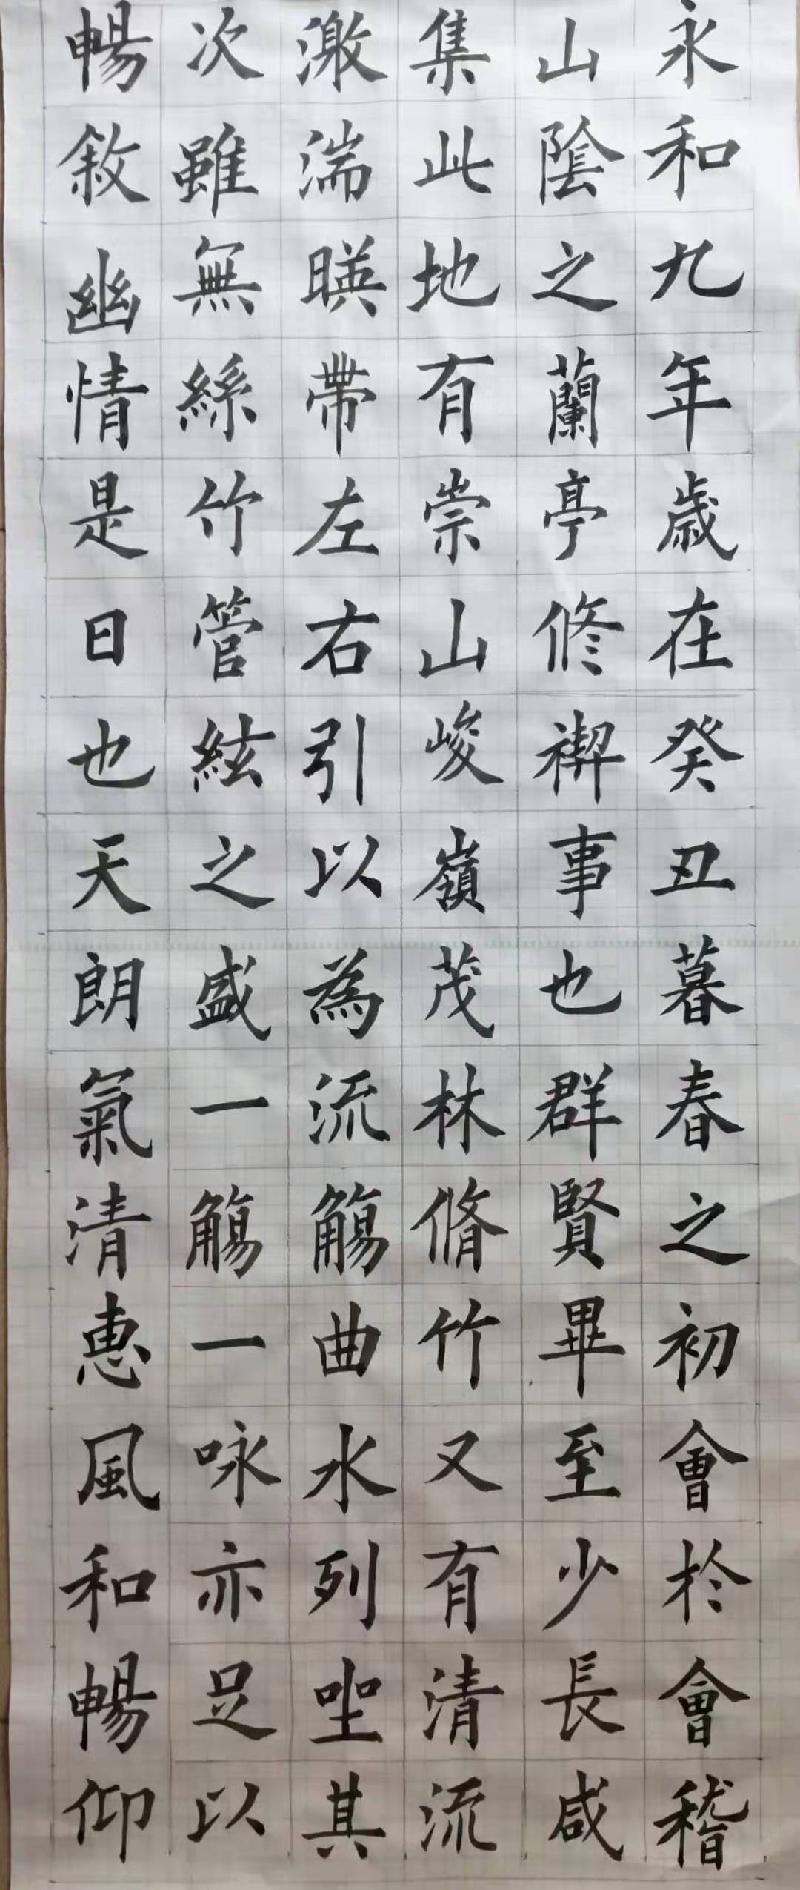 永和九年歳在癸丑暮春之初會於會稽
山陰之蘭亭修禊事也群賢畢至少長咸
集此地有崇山峻嶺茂林脩竹又有清流
激湍暎帶左右引以為流觴曲水列坐其
次雖無絲竹管絃之盛一觴一咏亦足以
暢敘幽情是日也天朗氣清恵風和暢仰